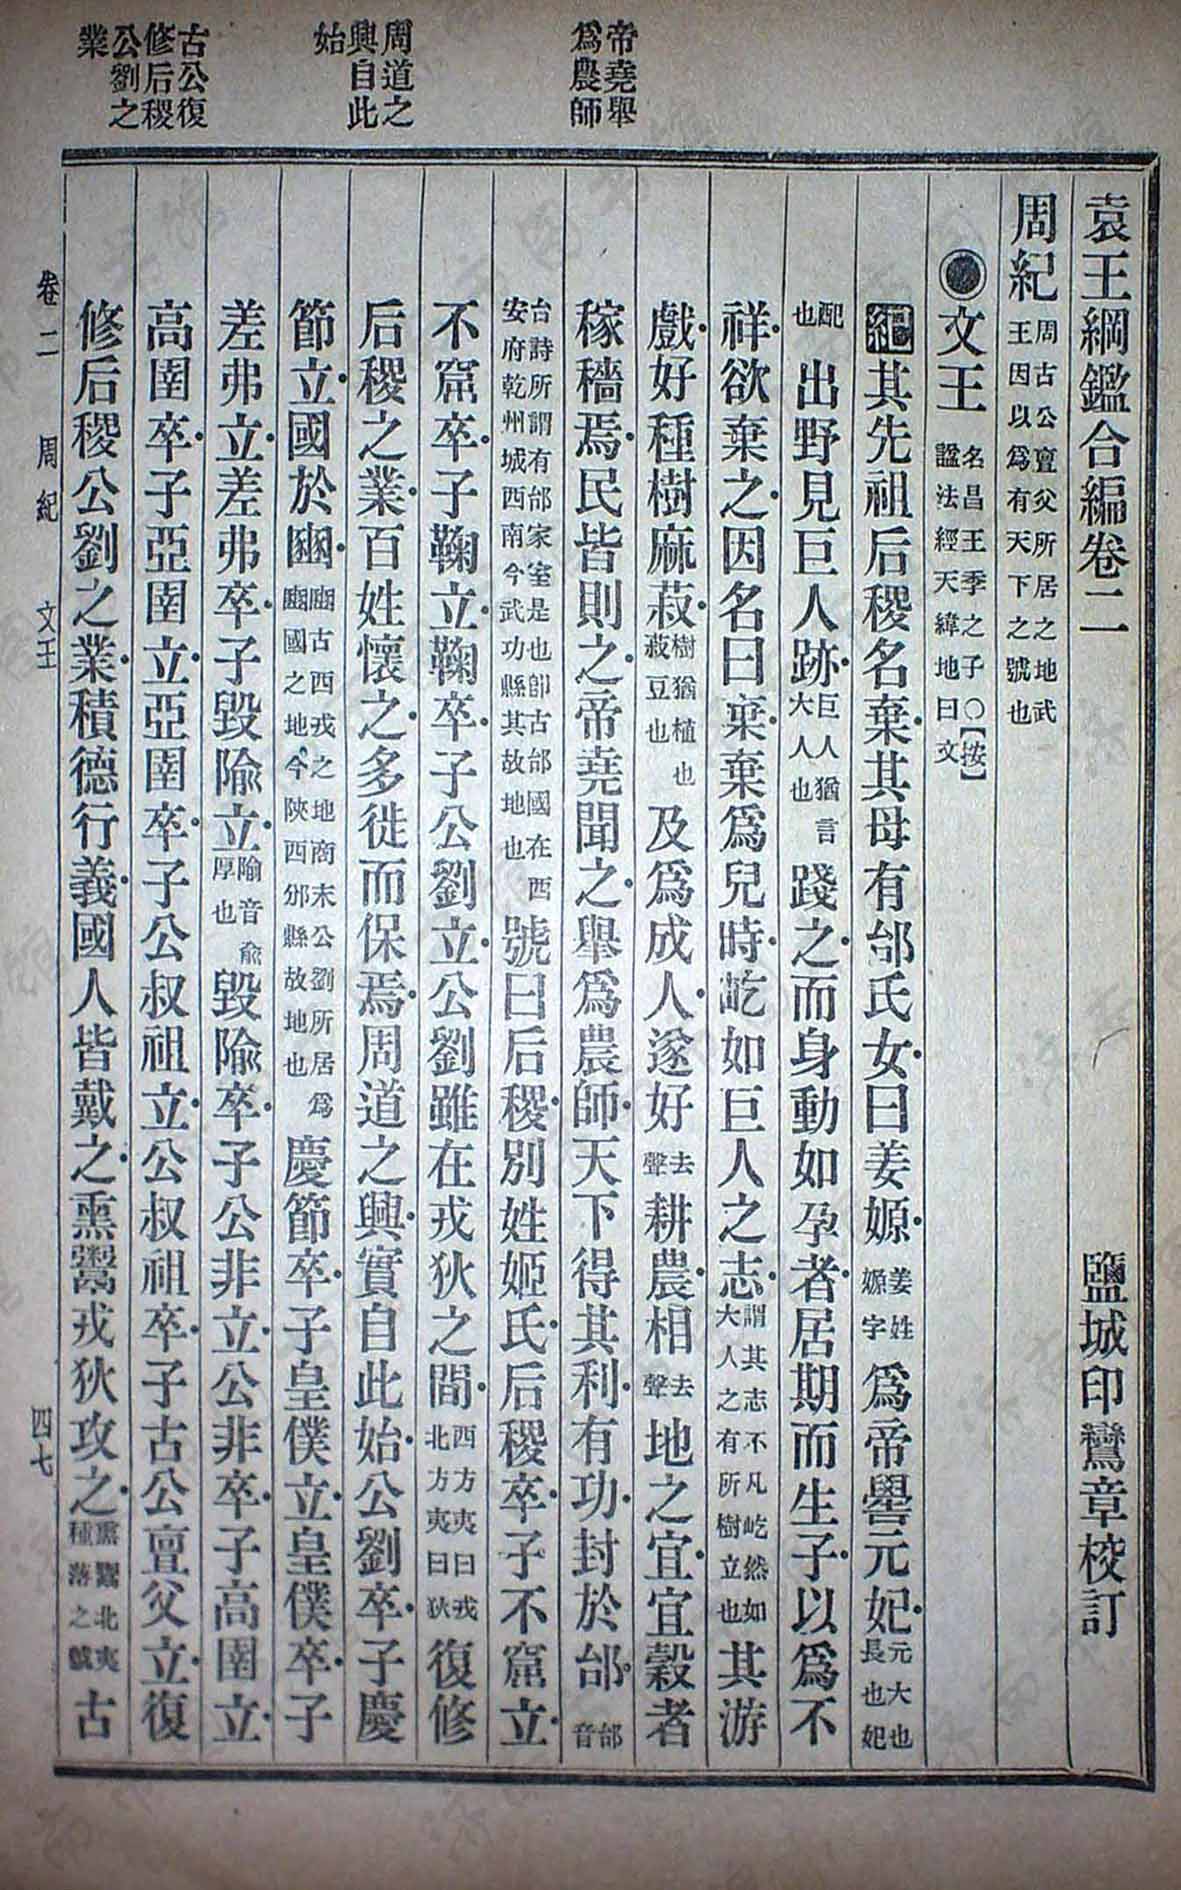 帝堯舉
爲農師
周道之
興自此
始
古公復
修后稷
公劉之
業
袁王綱鑑合編卷二　鹽城印鸞章校訂
周紀 周古公亶父所居之地武王因以爲有天下之號也
◉文王 名昌王季之子○【按】諡法經天緯地曰文
紀其先祖后稷名棄其母有邰氏女曰姜嫄 姜姓嫄字 爲帝嚳元妃 元大也長也妃
配也 出野見巨人跡 巨人猶言大人也 踐之而身動如孕者居期而生子以爲不
祥欲棄之因名曰棄棄爲兒時屹如巨人之志 謂其志不凡屹然如大人之有所樹立也 其游
戲好種樹麻菽 樹猶植也菽豆也 及爲成人遂好 去聲 耕農相 去聲 地之宜宜穀者
稼穡焉民皆則之帝堯聞之舉爲農師天下得其利有功封於邰 邰音
台詩所謂有邰家室是也卽古邰國在西安府乾州城西南今武功縣其故地也 號曰后稷別姓姬氏后稷卒子不窋立
不窋卒子鞠立鞠卒子公劉立公劉雖在戎狄之間 西方夷曰戎北方夷曰狄 復修
后稷之業百姓懷之多徙而保焉周道之興實自此始公劉卒子慶
節立國於豳 豳古西戎之地商末公劉所居爲豳國之地今陝西邠縣故地也 慶節卒子皇僕立皇僕卒子
差弗立差弗卒子毀隃立 隃音兪厚也 毀隃卒子公非立公非卒子高圉立
高圉卒子亞圉立亞圉卒子公叔祖立公叔祖卒子古公亶父立復
修后稷公劉之業積德行義國人皆戴之熏鬻戎狄攻之 熏鬻北夷種落之號 古
卷二　周紀　文王　四七